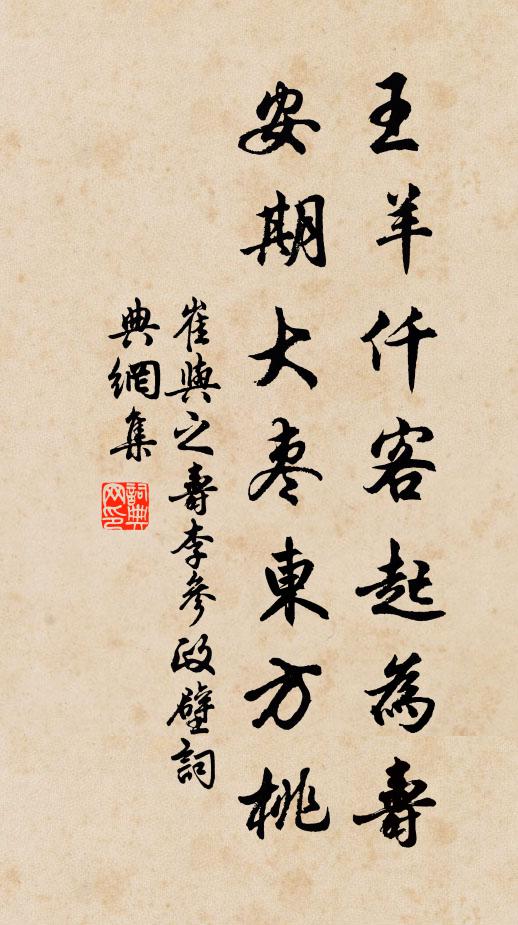 王羊仟客起為壽
安期大枣東方桃
崔與之壽李參政壁詞
典網集
詞典网印